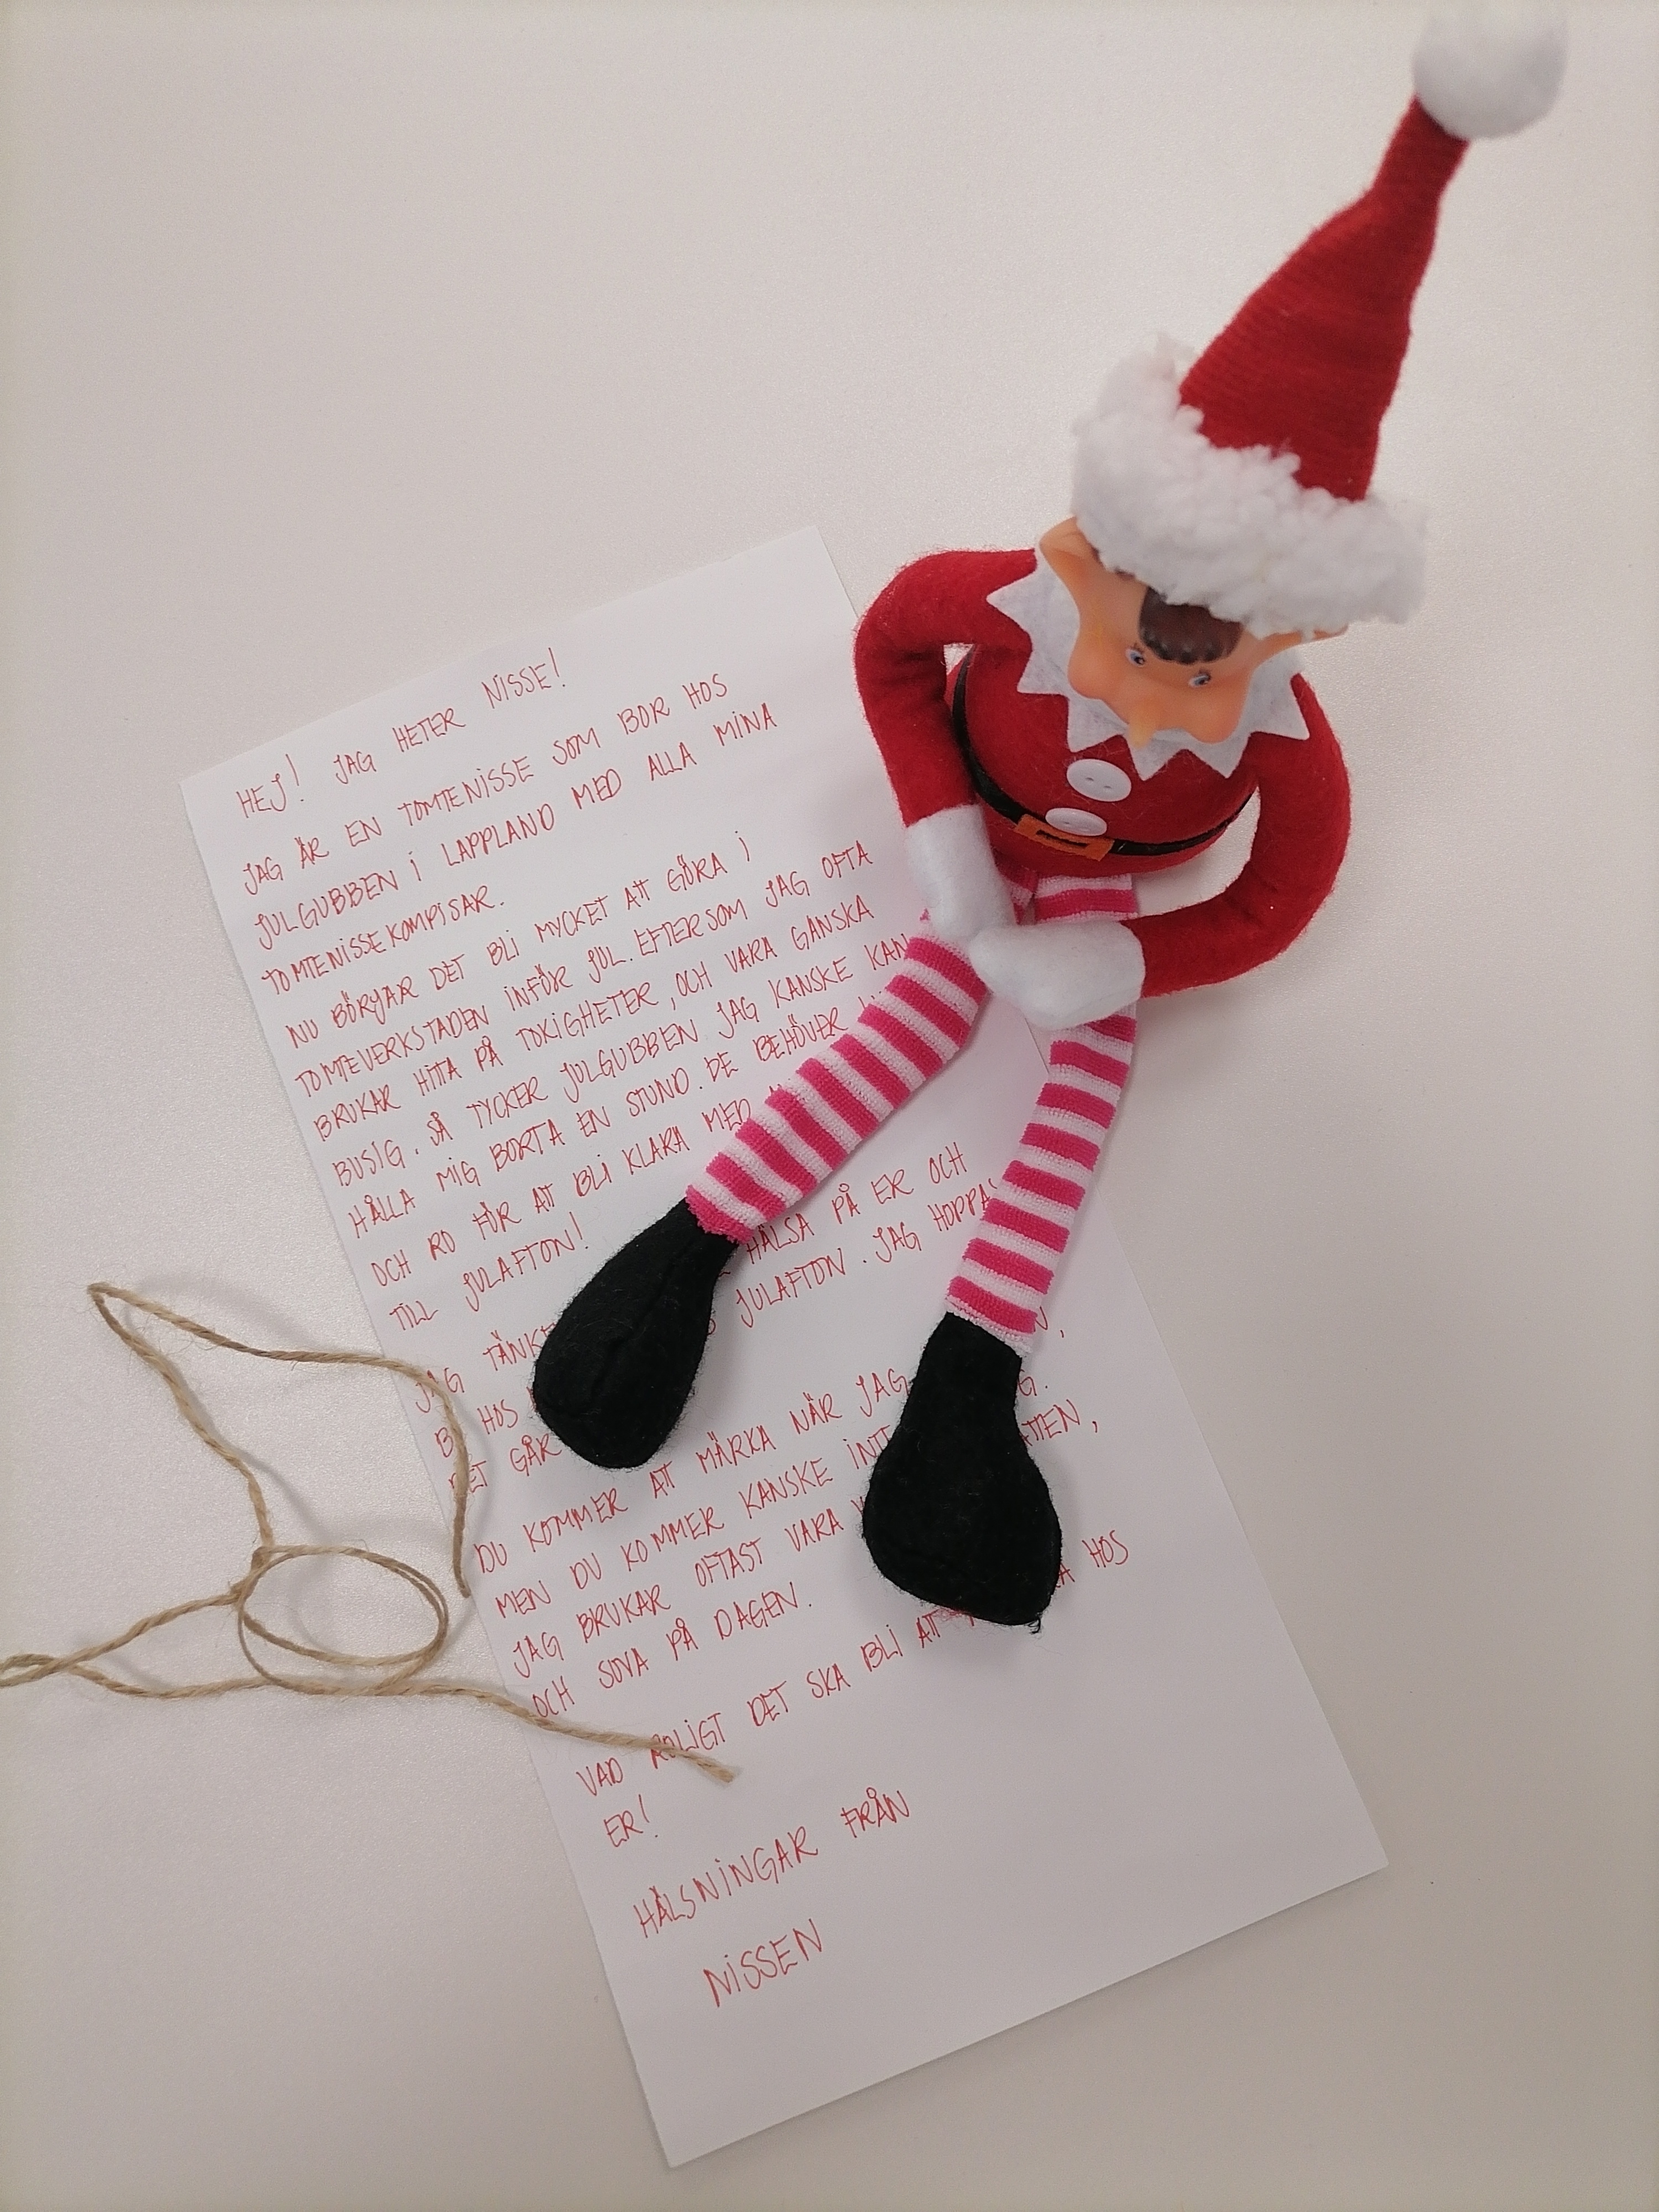 HEJ! JAG HETER NISSE!
JAG ÄR EN TOMTENISSE SOM BOR HOS
JULGUBBEN I LAPPLAND MED ALLA MINA
TOMTENISSEKOMPISAR.
NU BÖRJAR DET BLI MYCKET ATT GÖRA I
TOMTEVERKSTADEN INFÖR JUL. EFTERSOM JAG OFTA
BRUKAR HITTA PÅ TOKIGHETER, OCH VARA GANSKA
BUSIG, SÅ TYCKER JULGUBBEN JAG KANSKE KAN
HÅLLA MIG BORTA EN STUND. DE BEHÖVER
OCH RO FÖR ATT BLI KLARA MED
TILL JULAFTON!
JAG HÄLSA PÅ ER OCH
HOS JULAFTON. JAG HOPPAS
DET GÅR
DU KOMMER ATT MÄRKA NÄR JAG
MEN DU KOMMER KANSKE
JAG BRUKAR OFTAST VARA
OCH SOVA PÅ DAGEN.
VAD ROLIGT DET SKA BLI ATT HOS
ER!
HÄLSNINGAR FRÅN
NISSEN